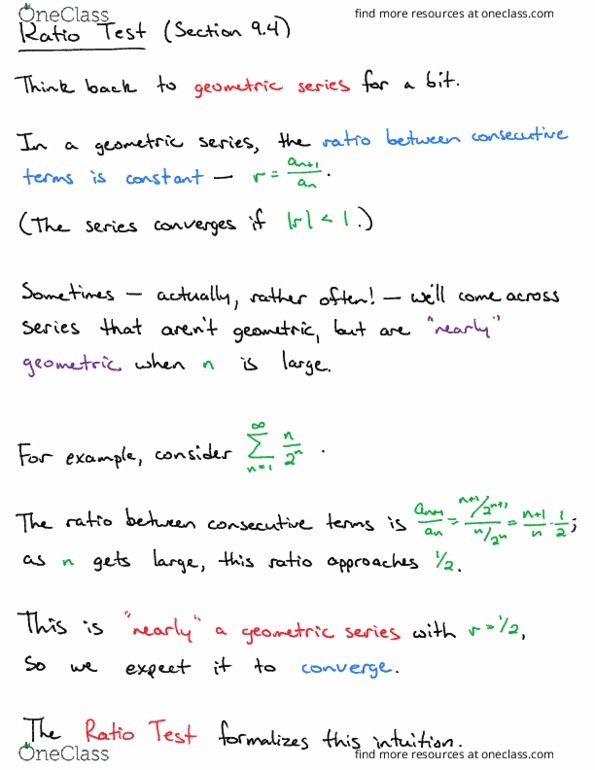 OneClass
find more resources at oneclass.com
Ratio Test (Section 9.4)
Think back to geometric series for a bit.
In a geometric series, the ratio between consecutive
terms is constant — r = aₙ₊₁/aₙ.
(The series converges if |r| < 1.)
Sometimes — actually, rather often! — we'll come across
series that aren't geometric, but are "nearly"
geometric when n is large.
For example, consider ∑_{n=1}^{∞} n/2ⁿ.
The ratio between consecutive terms is aₙ₊₁/aₙ = (n+1/2ⁿ⁺¹)/(n/2ⁿ) = n+1/n · 1/2;
as n gets large, this ratio approaches 1/2.
This is "nearly" a geometric series with r = 1/2,
so we expect it to converge.
The Ratio Test formalizes this intuition.
OneClass
find more resources at oneclass.com